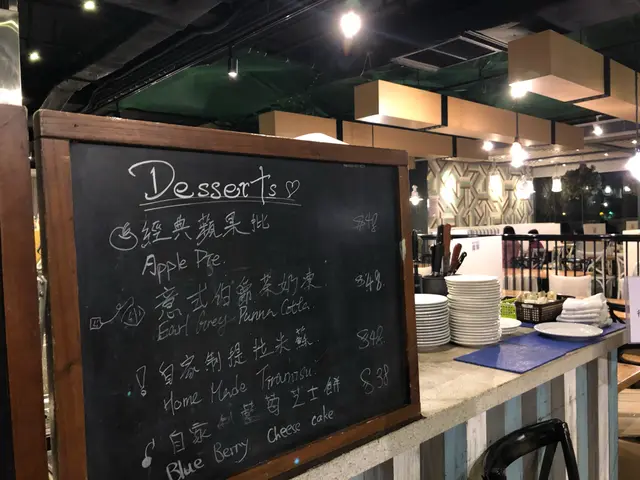 Desserts ♡
經典蘋果批 $48
Apple Pie.
意式伯爵茶奶凍 $48
Earl Grey Panna Cotta
自家制提拉米蘇 $48
Home Made Tiramisu
自家制藍莓芝士餅 $38
Blue Berry Cheese cake